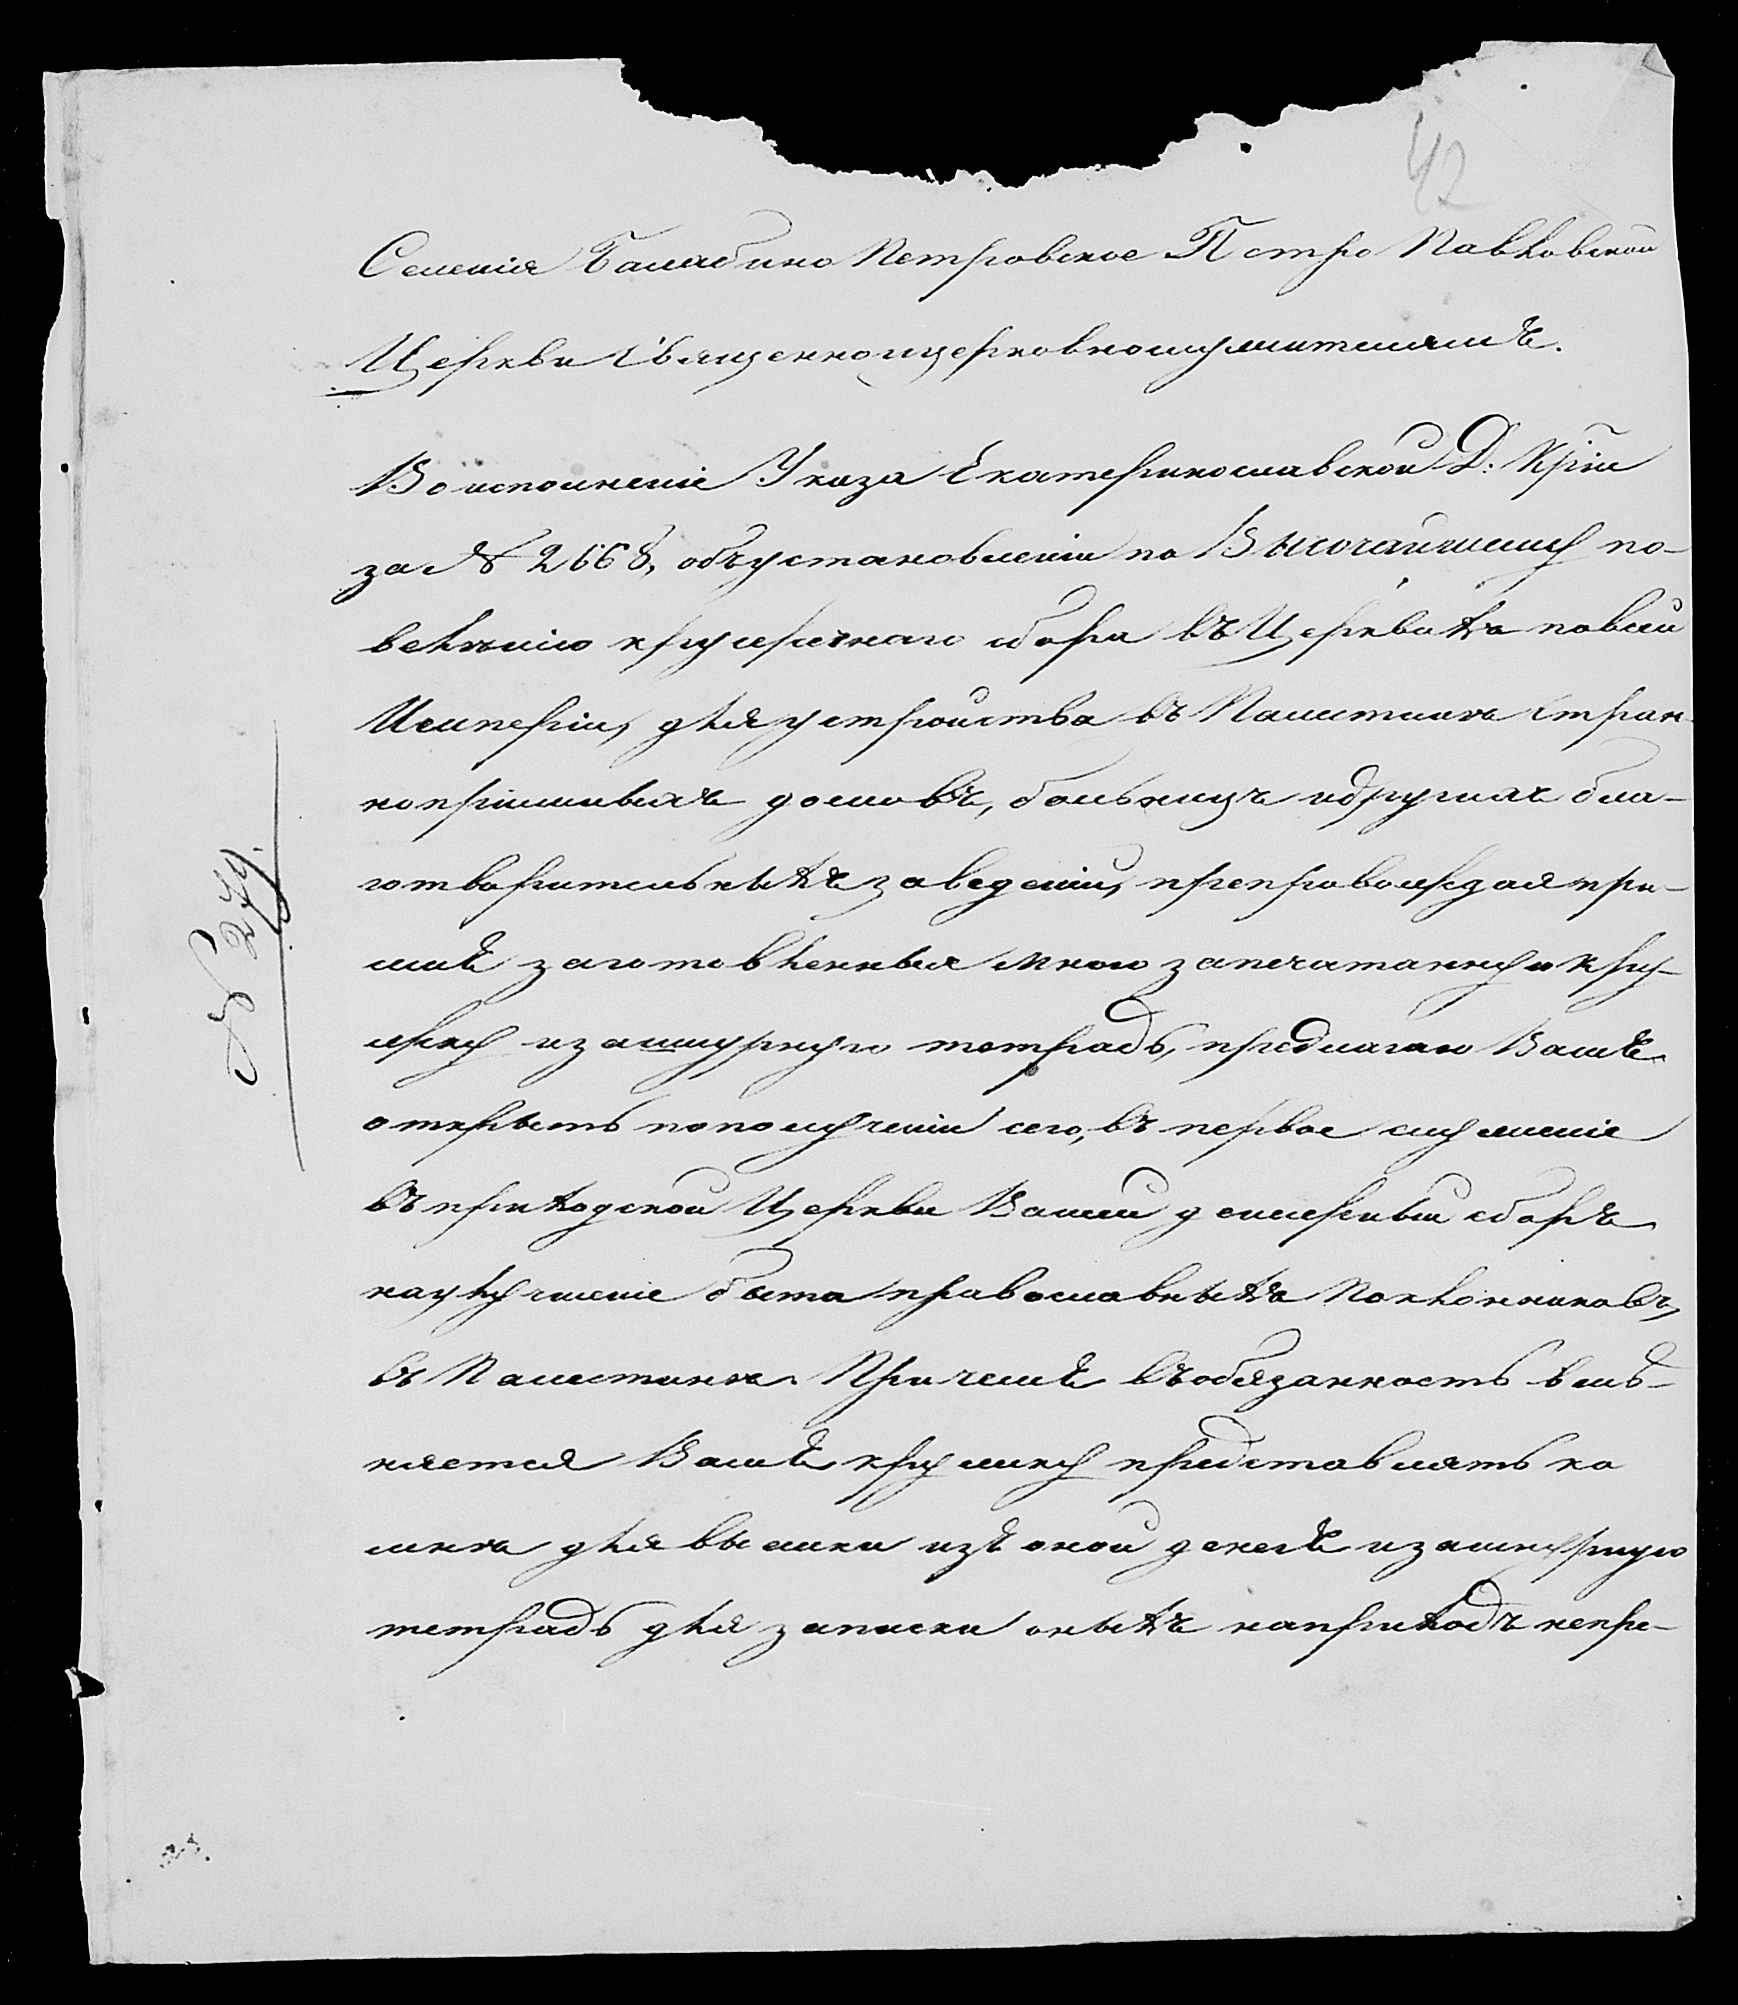 42
Селенія Балабино Петровское Петро Павловской
Церкви Священноицерковнослужителямъ.
Во исполненіе Указа Екатеринославской Д. Крїи
за № 2668, объ установленіи по Высочайшему по-
велѣнію кружечнаго сбора въ Церквахъ по всей
Имперіи, для устройства въ Палестинѣ стран-
нопріимныхъ домовъ, больницъ и другихъ бла-
готворительныхъ заведеній, препровождая при
семъ заготовленныя мною запечатанную кру-
жку и зашнурную тетрадь, предлагаю Вамъ
открыть по полученіи сего, въ первое служеніе
въ приходской Церкви Вашей денежный сборъ
на улучшеніе быта православныхъ Поклонниковъ,
въ Палестинѣ. Причемъ въ обязанность вмѣ-
няется Вамъ кружку представлять ко
мнѣ для высыпки изъ оной денегъ и зашнурную
тетрадь для записки оныхъ на приходъ непре-
№ 244.